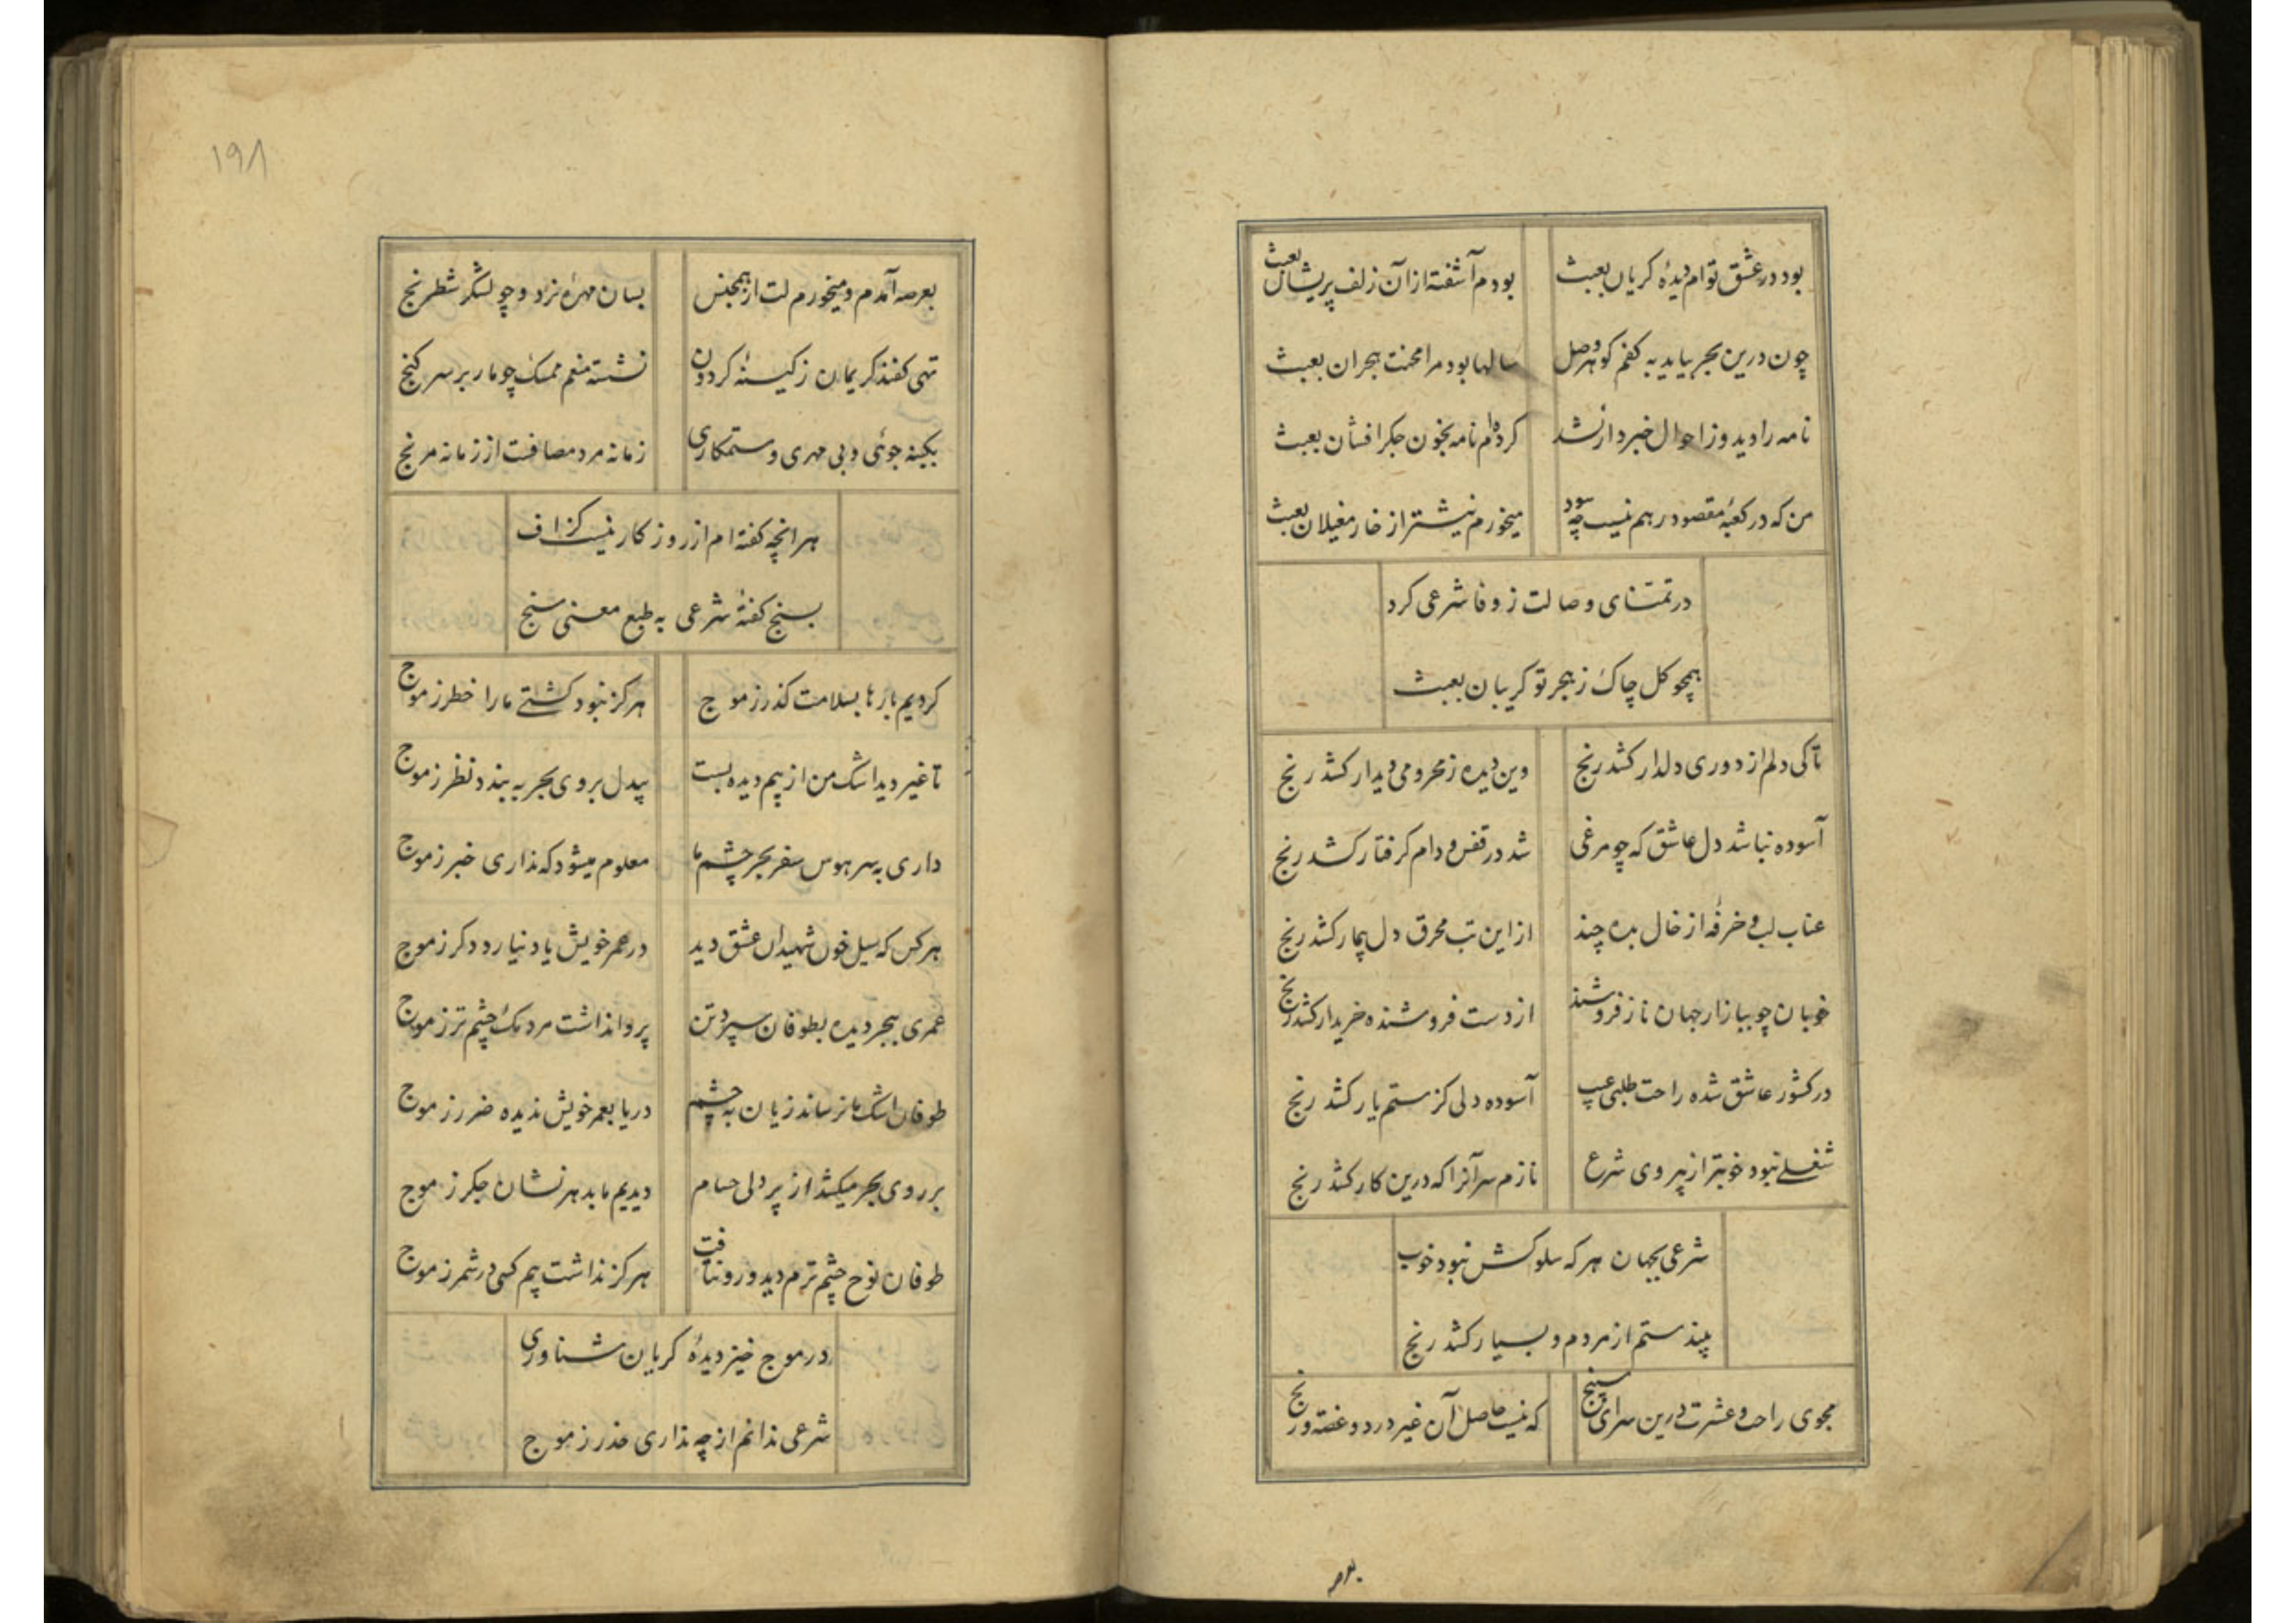 بود در عشق توام دیدۀ کریان بعبث بودم آشفته از آن زلف پریشان بعبث
چون درین بحر بیاید به کفم کوهر وصل سالها بود مرا محنت هجران بعبث
نامه را دید و ز احوال خبردار نشد کرده‌ام نامه بخون جکر افشان بعبث
من که در کعبۀ مقصود رهم نیست چه سود میخورم نیشتر از خار مغیلان بعبث
در تمنای وصالت ز وفا شرعی کرد
همچو کل چاک ز هجر تو کریبان بعبث
تا کی دلم از دوری دلدار کشد رنج وین دیده ز محرومی دیدار کشد رنج
آسوده نباشد دل عاشق که چو مرغی شد در قفس و دام کرفتار کشد رنج
عناب لب و خرفه از خال بده چند از این تب محرق دل بیمار کشد رنج
خوبان چو ببازار جهان ناز فروشند از دست فروشنده خریدار کشد رنج
در کشور عاشق شده راحت طلبی عیب آسوده دلی کز ستم یار کشد رنج
شغلی نبود خوبتر از پیروی شرع نازم سر آنرا که درین کار کشد رنج
شرعی بجهان هر که سلوکش نبود خوب
بیند ستم از مردم و بسیار کشد رنج
مجوی راحت و عشرت درین سرای سپنج که نیست حاصل آن غیر درد و غصه و رنج
بعرصه
۱۹۸
بعرصه آمدم و میخورم لت از همجنس بسان مهرۀ نرد و چو لشکر شطرنج
تهی کفند کریمان ز کینۀ کردون نشسته منعم ممسک چو مار بر سر کنج
بکینه جوئی و بی مهری و ستمکاری زمانه مرد مصافست از زمانه مرنج
هر انچه کفته‌ام از روزکار نیست کزاف
بسنج کفتۀ شرعی به طبع معنی سنج
کردیم بارها بسلامت کذر ز موج هرکز نبود کشتی ما را خطر ز موج
تا غیر دید اشک من از بیم دیده بست بیدل بروی بحر به بندد نظر ز موج
داری به سر هوس سفر بحر چشم ما معلوم میشود که نداری خبر ز موج
هر کس که سیل خون شهیدان عشق دید در عمر خویش یاد نیارد دکر ز موج
عمری ببحر دیده بطوفان سپرد تن پروا نداشت مردمک چشم تر ز موج
طوفان اشک ما نرساند زیان به چشم دریا بعمر خویش ندیده ضرر ز موج
بر روی بحر میکشد از پر دلی حسام دیدیم ما بدهر نشان جکر ز موج
طوفان نوح چشم ترم دید و رو نتافت هرکز نداشت بیم کسی در شمر ز موج
در موج خیز دیدۀ کریان شناوری
شرعی ندانم از چه نداری حذر ز موج